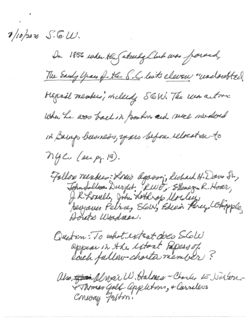 S.G.W.
In 1856 when the Saturday Club was formed,
The Early Years of the S.C. lists eleven "undoubted
original members", including S.G.W. This was a time
when he was back in Boston and was involved
in Barings business, years before relocation to
NYC (see pg. 15).
Fellow members: Louis Agassiz, Richard H. Dana Jr,
John Sullivan Dwight, RWE, Ebenezer R. Hoar,
J.R. Lowell, John Lothrop Motley,
Benjamin Peirce, SGW, Edwin Percy Whipple,
Horatio Woodman.
Question: To what extent does SGW
appear in the extant papers of
each fellow charter member?
Also, Oliver W. Holmes
Thomas Gold Appleton, + Cornelius
Conway Felton.